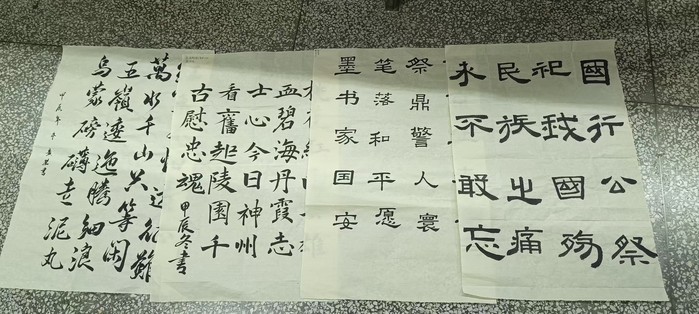 國行公祭
祀我國殤
民族之痛
永不敢忘
祭鼎警人寰
笔落和平愿
墨书家国安
血碧海丹霞志
士心今日神州
看舊起陵園千
古慰忠魂 甲辰冬書
征難
萬水千山只等闲
五嶺逶迤騰細浪
烏蒙磅礴走泥丸
甲辰年冬